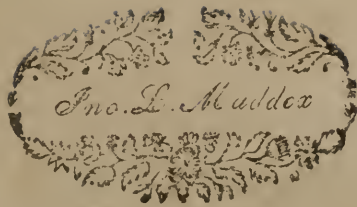 Jno. L. Maddox